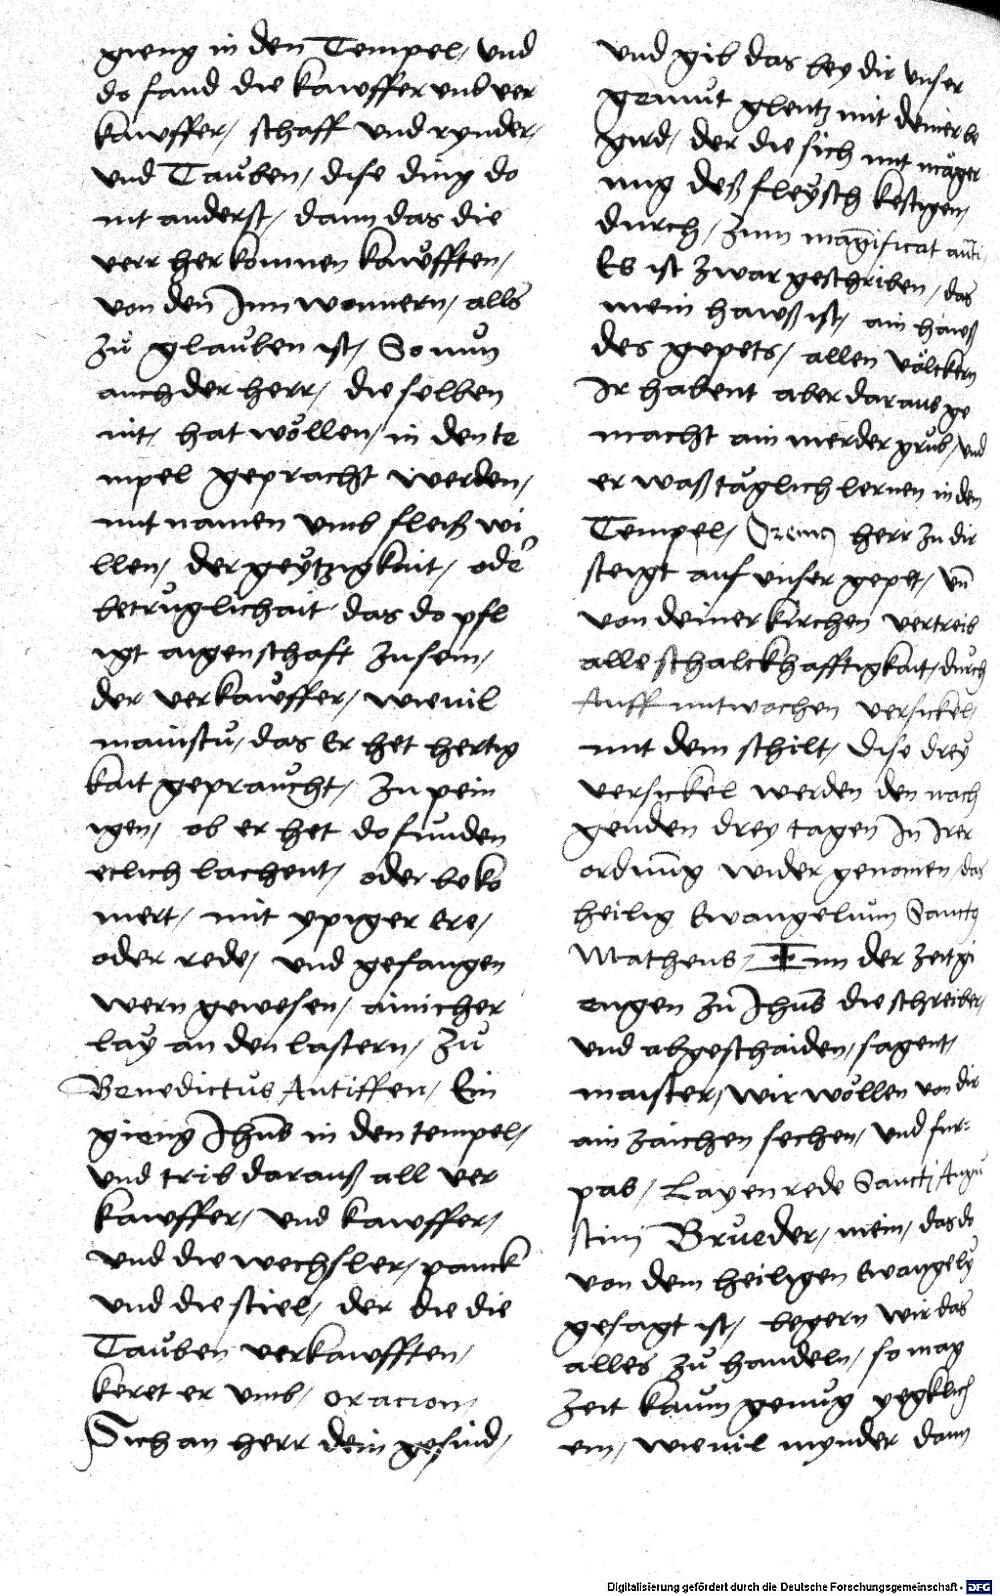 gieng in den Tempel/ Und
do fand die kawffer und ver
kawffer/ schaff und rynder/
und Tauben/ dise ding do
nit anderst/ dann das die
verr her komnen kawfften/
von den Innwonnern/ alls
zu glauben ist/ So nun
auch der herr/ die selben
nit/ hat wöllen/ in den te
mpel gepracht werden/
mit namen umb fleiß wi
llen/ der geytzigkait/ oder
betruglichait das do pfl
igt aigenschaft zu sein/
der verkawffer/ wievil
mainstu/ das er het hertig
kait gepraucht/ zu pein
igen/ ob er het do funden
etlich lachent/ oder beko
mert/ mit ypiger ere/
oder rede/ und gefangen
wern gewesen/ ainicher
lay an den lastern/ Zu
Benedictus Antiffen/ Ein
gieng Jhus in den tempel/
und trib darauß all ver
kawffer/ und kawffer/
und die wechsler/ panck
und die stiel/ der die die
Tauben verkawfften/
keret er umb/ oracion/
Sich an herr dein gesind/
und gib das bey dir unser
gemut glentz mit deiner be
gird/ der die sich mit mäger
ung deß fleysch kestigen/
durch/ Zum magnificat anti/
Es ist zwar geschriben/ das
mein hawß ist/ ain hawß
des gepets/ allen völckern
Ir habent aber daraus ge
macht ain merder grub/ und
er waß täglich lernen in den
Tempel/ herr zu dir
steigt auf unser gepet/ un
von deiner kirchen vertreib
alle schalckhafftigkait/ durch
Auff mitwochen versickel/
mit dem schilt/ dise drey
versickel werden den nach
genden drey tagen In Irer
ordnung wider genomen/ das
heilig Ewangelium Sancti
Matheus/ In der zeit gi
engen zu Jhus die schreiber/
und abgeschaiden/ sagent/
maister/ wir wöllen von dir
ain zaichen sechen/ und fur=
pas/ Layenrede Sancti Augu
stini Brueder/ mein/ das do
von dem heiligen Ewangely
gesagt ist/ begern wir das
alles zu handeln/ so mag
zeit kaum genug yegklich
em/ wievil mynder dann